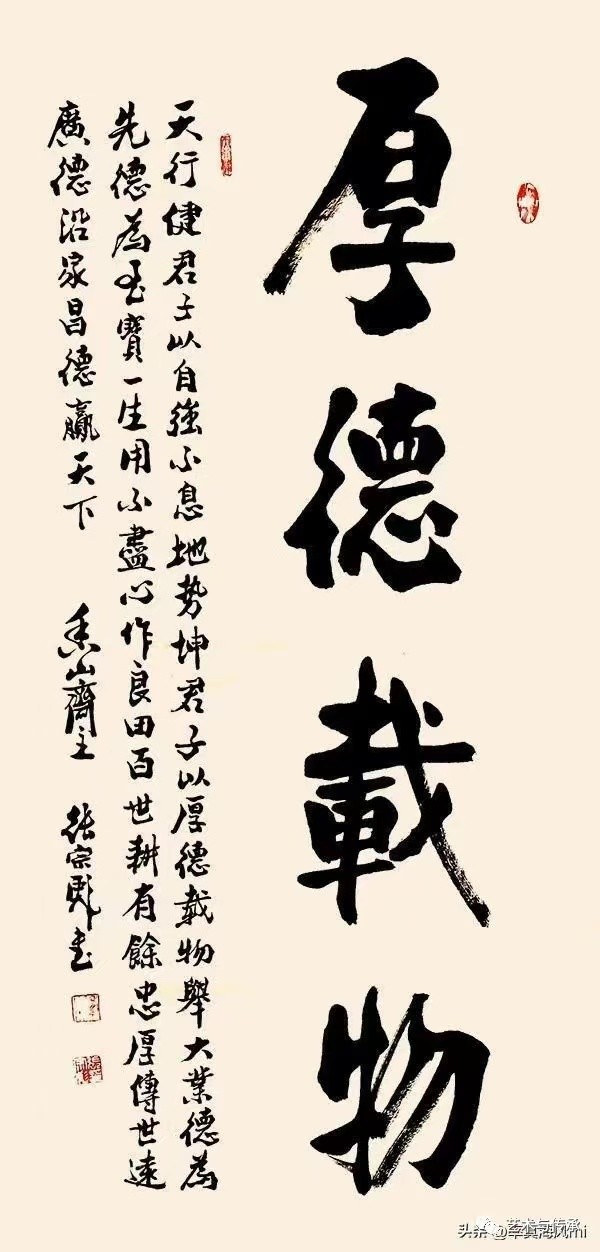 厚德載物
天行健君子以自強不息地势坤君子以厚德載物舉大業德為
先德為至寶一生用不盡心作良田百世耕有餘忠厚傳世遠
廣德治家昌德贏天下
山齋主 張宗彪書
艺术与传承
头条@